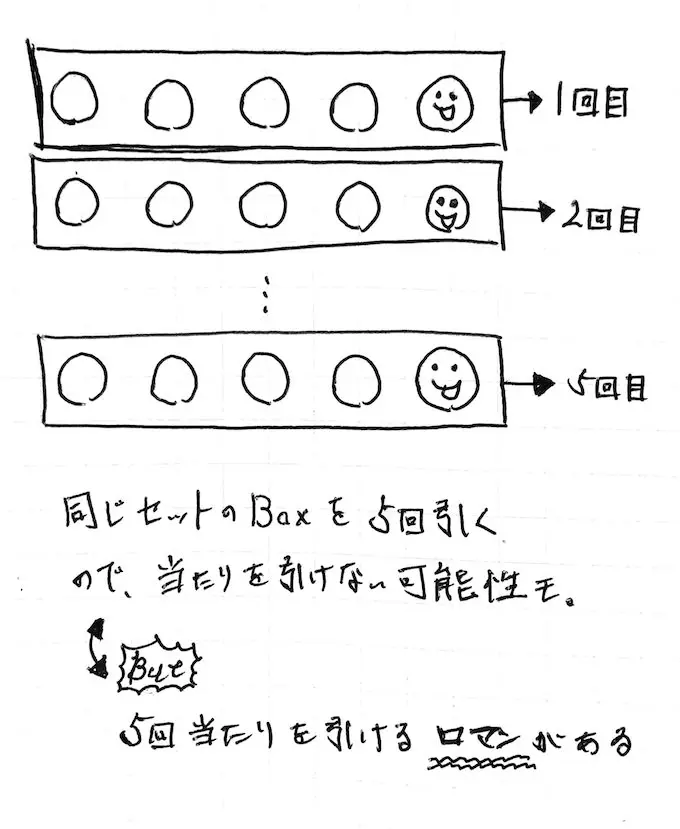 1回目
2回目
5回目
同じセットのBoxを5回引く
ので、当たりを引けない可能性モ。
But
5回当たりを引けるロマンがある